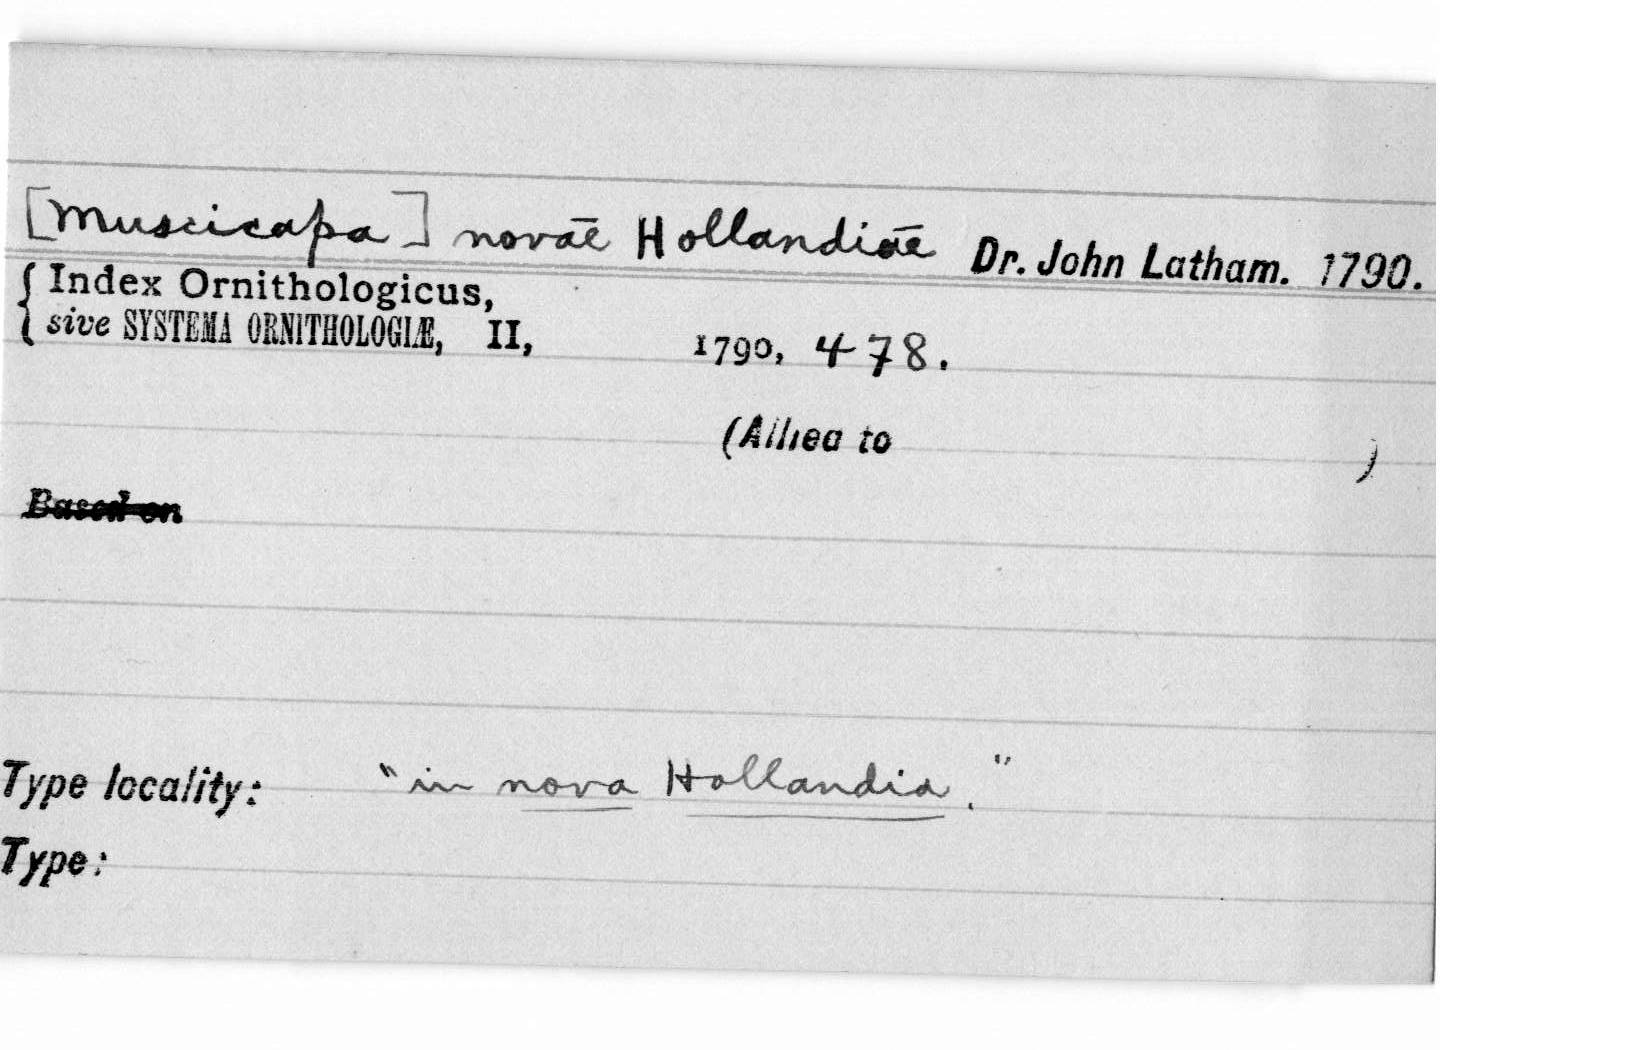 [Muscicapa] novae Hollandiae Dr. John Latham. 1790.
{ Index Ornithologicus,
sive SYSTEMA ORNITHOLOGIÆ, II, 1790, 478.
(Allied to )
Based on
Type locality: "in nova Hollandia."
Type: